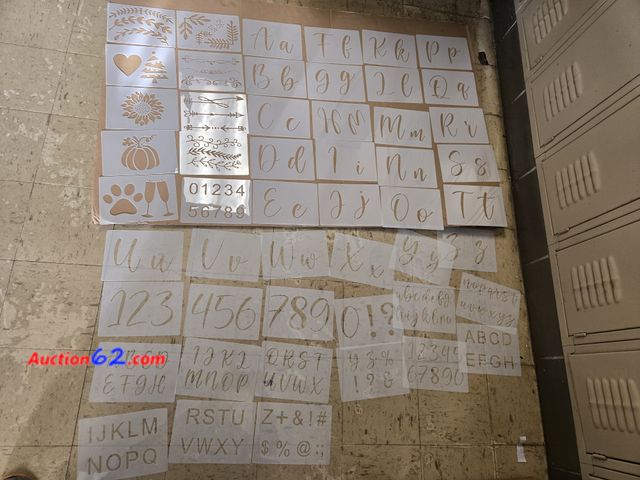 Aa Ff Kk Pp
Bb Gg Ll Qq
Cc Mm Rr
Dd Ii Nn Ss
01234
56789
Ee Jj Oo Tt
Uu Vv Ww Xx Yy Zz
123 456 789 0!?
Auction62.com
EFGH
IJKL
MNOP
QRST
UVWX
YZ%
!?&
12345
67890
ABCD
EFGH
IJKLM
NOPQ
RSTU
VWXY
Z+&!#
$%@:;